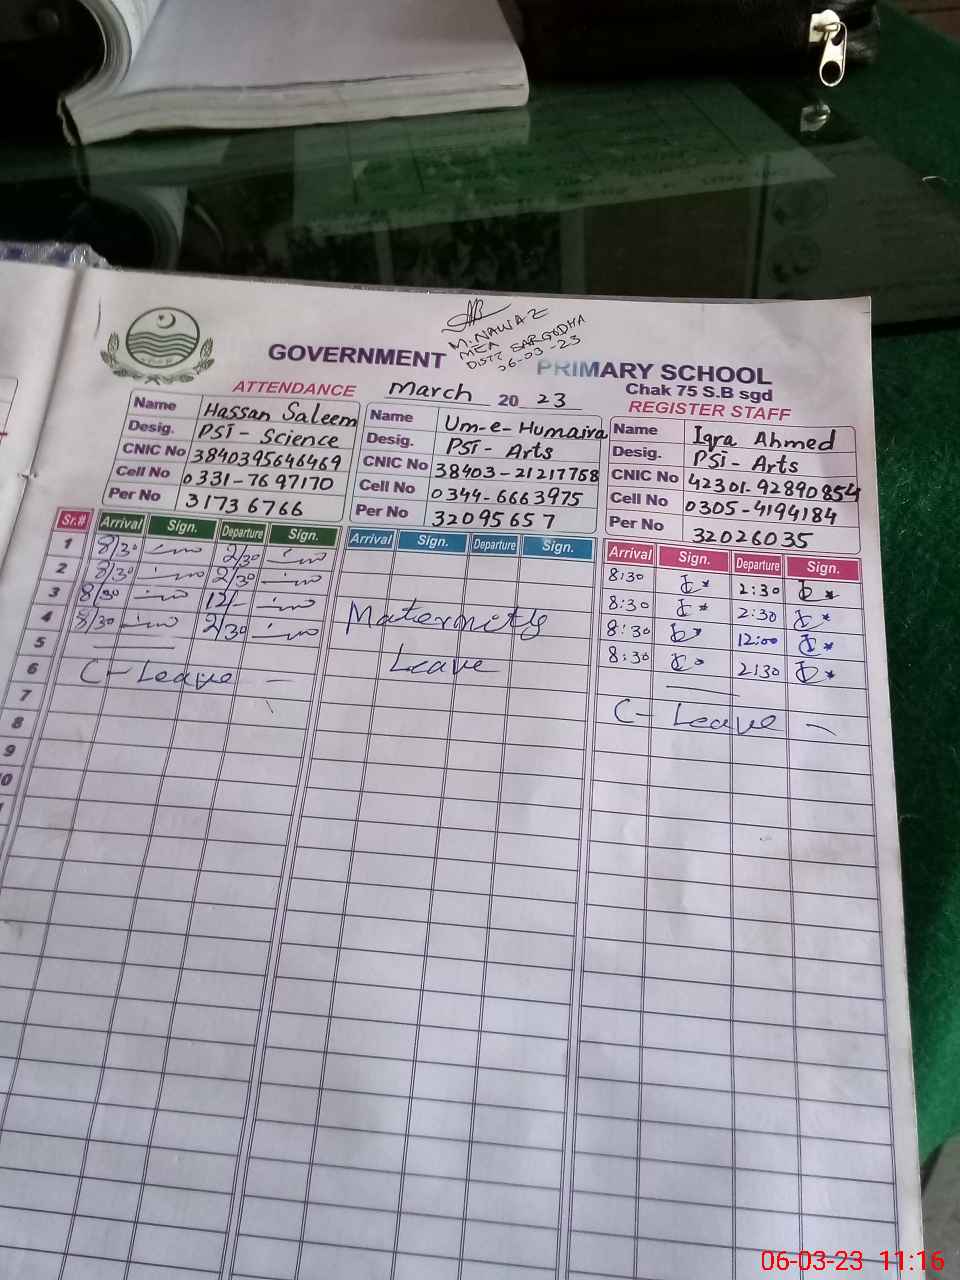 M. NAWAZ
MEA
DISTT SARGODHA
06-03-23
GOVERNMENT PRIMARY SCHOOL
Chak 75 S.B sgd
ATTENDANCE March 2023 REGISTER STAFF
Name Hassan Saleem
Desig. PST - Science
CNIC No 3840395646469
Cell No 0331-7697170
Per No 31736766
Name Um-e-Humaira
Desig. PST - Arts
CNIC No 38403-21217758
Cell No 0344-6663975
Per No 32095657
Name Iqra Ahmed
Desig. PST - Arts
CNIC No 42301-92890854
Cell No 0305-4194184
Per No 32026035
Sr.# Arrival Sign. Departure Sign. Arrival Sign. Departure Sign. Arrival Sign. Departure Sign.
1 8/30 2/30 8:30 2:30
2 8/30 2/30 8:30 2:30
3 8/30 12/- 8:30 12:00
4 8/30 2/30 Maternity 8:30 2:30
5 Leave
6 C-Leave - C-Leave -
7
8
9
06-03-23 11:16